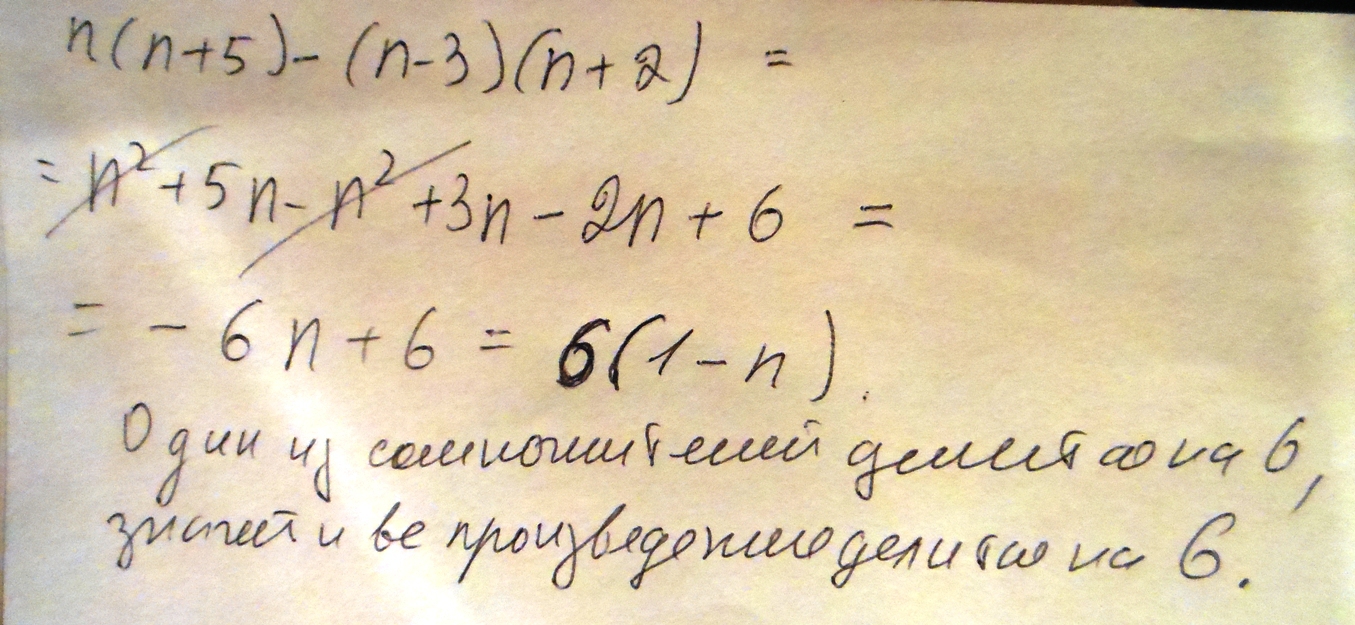 n(n+5)-(n-3)(n+2) =
= n²+5n-n²+3n-2n+6 =
= -6n+6 = 6(1-n).
Один из сомножителей делится на 6,
значит и все произведение делится на 6.